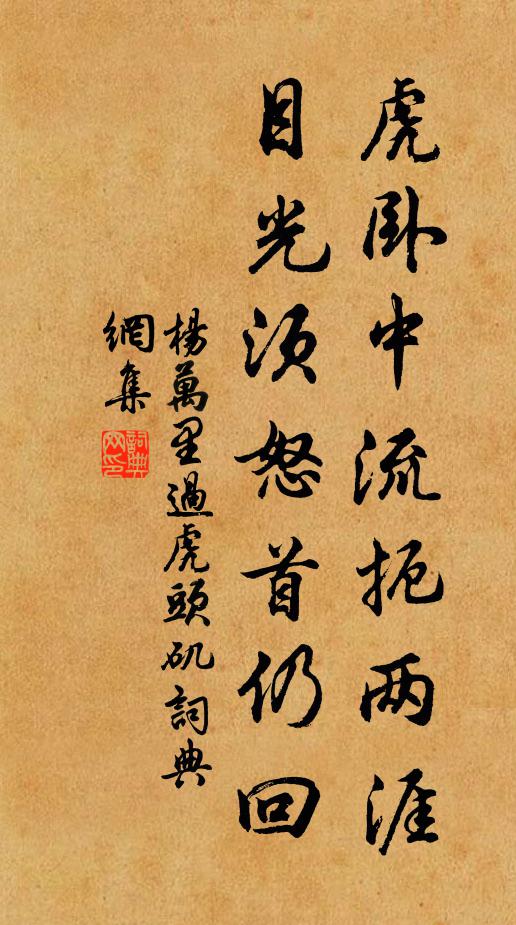 虎卧中流扼两涯
目光须怒首仍回
楊萬里過虎頭矶詞典
網集
詞典
网印